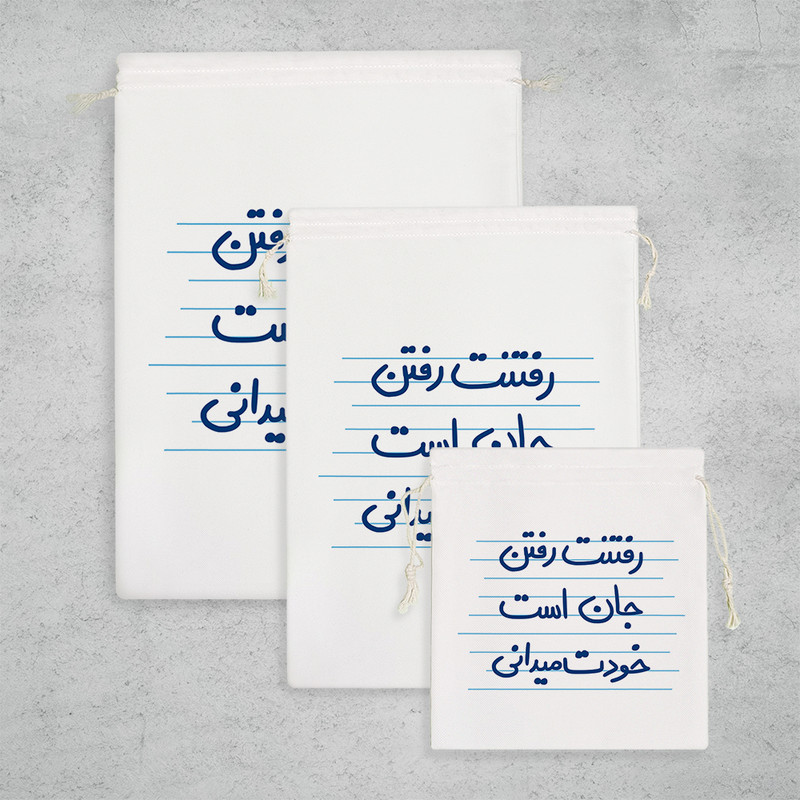 رفتن
ست
یدانی
رفتنت رفتن
جان است
یدانی
رفتنت رفتن
جان است
خودت میدانی